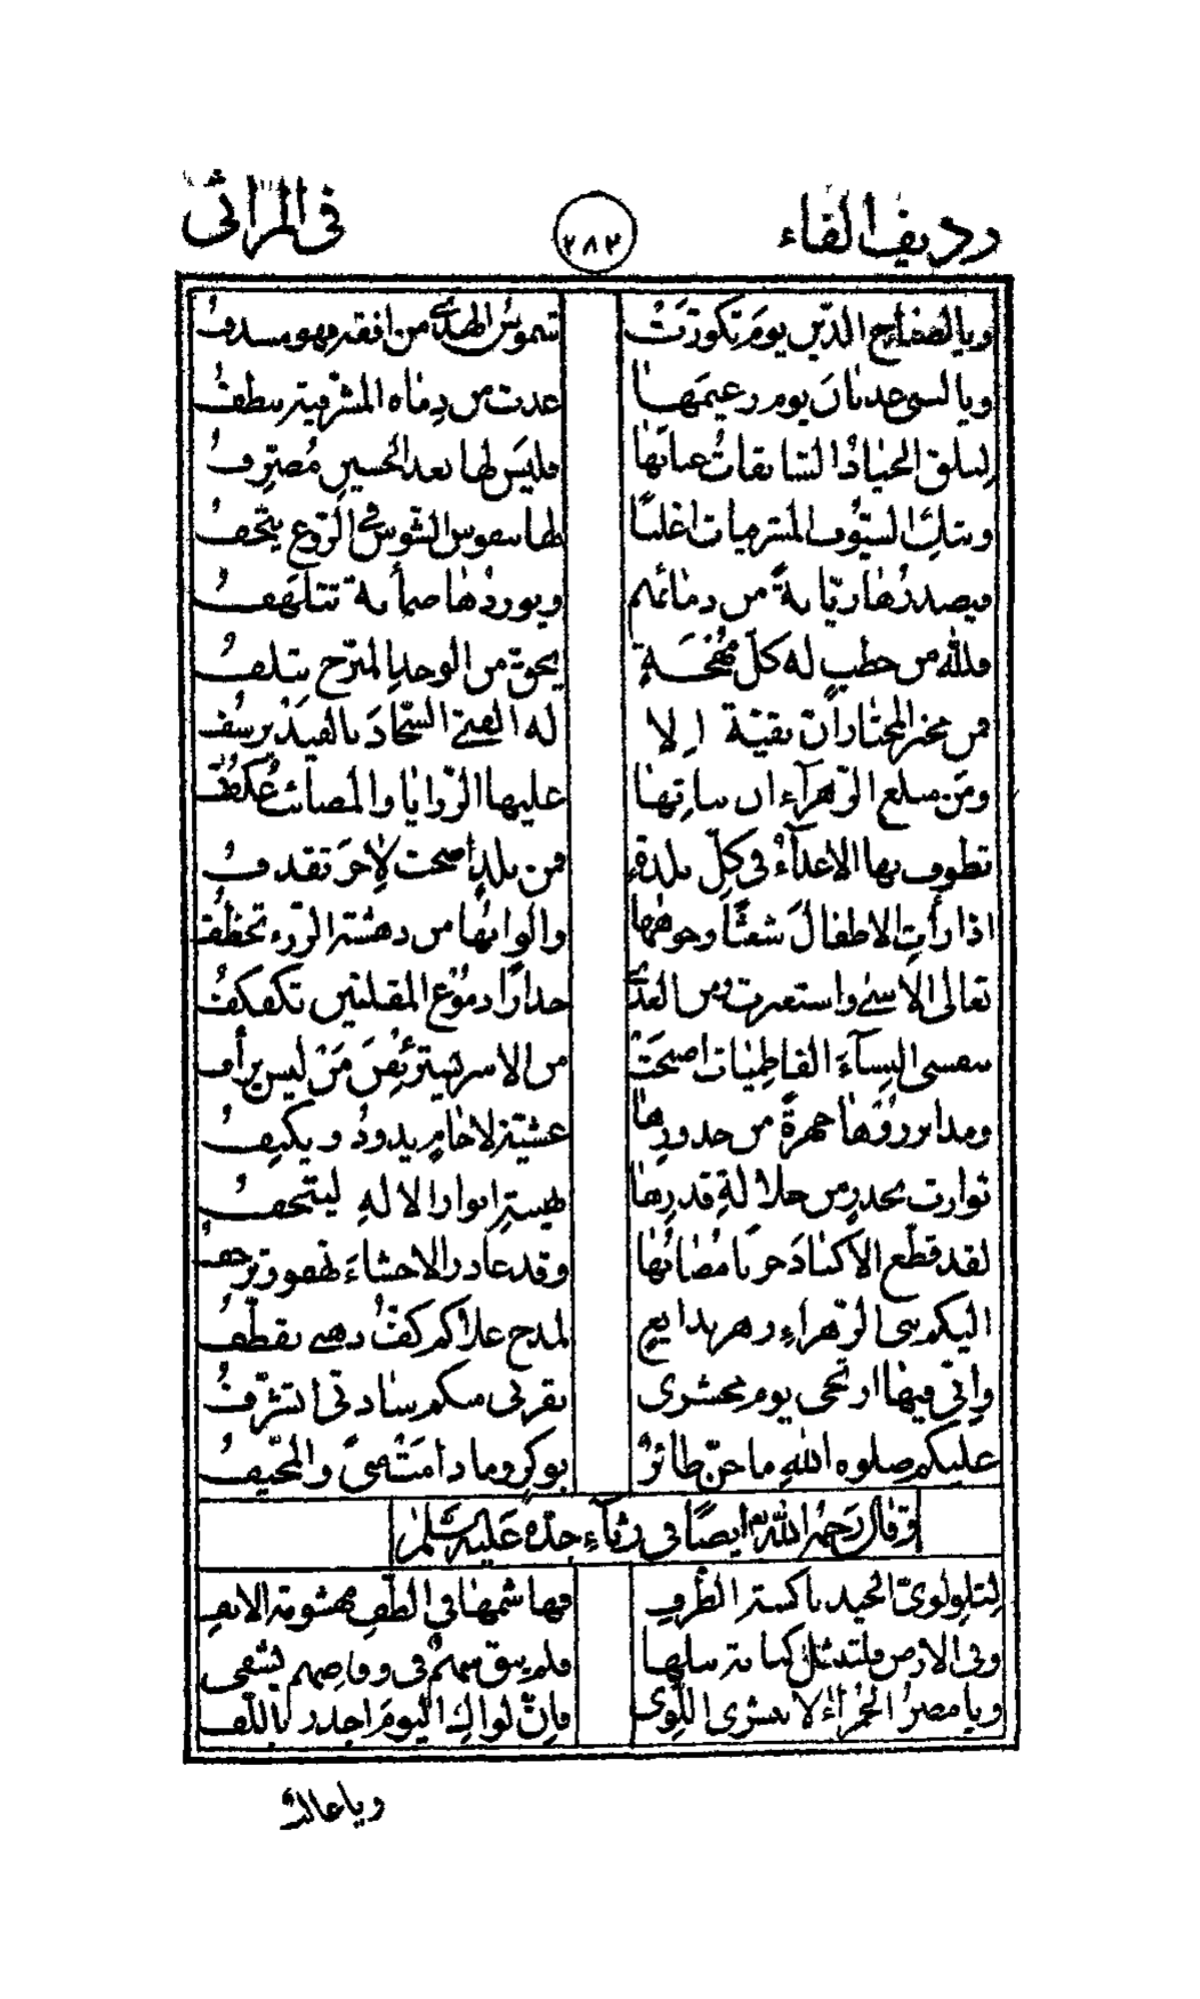 رديف الفاء ٢٨٢ في المراثي
ويا لصباح الدّين يومَ تكورَتْ شموسُ الهدى من افقه فهو مسدفُ
ويا لبني عدنانَ يوم زعيمها غدت من دماه المشرفية تنطفُ
لتلق الجيادُ السّابقاتُ عنانها فليسَ لها بعد الحسينِ مُصرِّفُ
وتبكِ السّيوف المشرفيات اغلبًا لها بنفوس الشّوس في الرّوع يتحفُ
فيصدرُها ريّانةً من دمائهم ويوردُها ضمأنة تتلهّفُ
فللّٰه من خطبٍ له كلّ مهجةٍ يحقّ من الوجد المبرّح تتلفُ
فمن مخبر المختار انّ بقيّة الا له الفتى السّجاد بالقيد يرسفُ
ومَن مبلغ الزّهراءَ ان بناتها عليها الرّزايا والمصائبُ عُكّفُ
تطوف بها الاعدآءُ في كلّ بلدةٍ فمن بلدٍ أضحت لِأخرَ تقذفُ
اذا رأت الاطفالَ شعثًا وجوهُها والوانها من دهشة الرّزء تخطفُ
تعالى الاسى واستعبرت ومن العدى حذارًا دموعُ المقلتين تكفكفُ
بنفسى النسآءَ الفاطميات اضحَتْ من الاسر يَسترئِفنَ مَنْ ليس يرأفُ
ومذ ابرزوها جهرةً من خدورها عشيّة لا حامٍ يذودُ ويكنفُ
توارت بخدرٍ من جلالةِ قدرِها بهيبة انوار الالهِ ليتحفُ
لقد قطّع الاكبادَ حزنًا مصابُها وقد غادر الاحشاءَ تهفو وترجفُ
اليكم بنى الزّهراءِ زهر بدايعٍ لمدح علاكم كفُّ دهى تقطّفُ
وانّي فيها ارتجى يوم محشرى بقربى منكم ساداتى اتشرّفُ
عليكم صلوة اللهِ ما حنّ طائرٌ بوكرٍ وما دامَتْ منىً والمخيّفُ
وقال رَحِمَهُ اللهُ ايضًا في رثآءِ جدّه عَلَيْهِ السّلمُ
لتلوِ لوىّ الجيد ناكسة الطَّرفِ فهاشمها في الطّفِ مهشومة الانفِ
وفى الارض فلتنثل كنانة نبلها فلم يبق سهمٌ في وفاضهم يشفى
ويا مضرُ الحمراءُ لا تنشرى اللّوى فانّ لواكِ اليومَ اجدر باللّفِ
ويا غالبُ